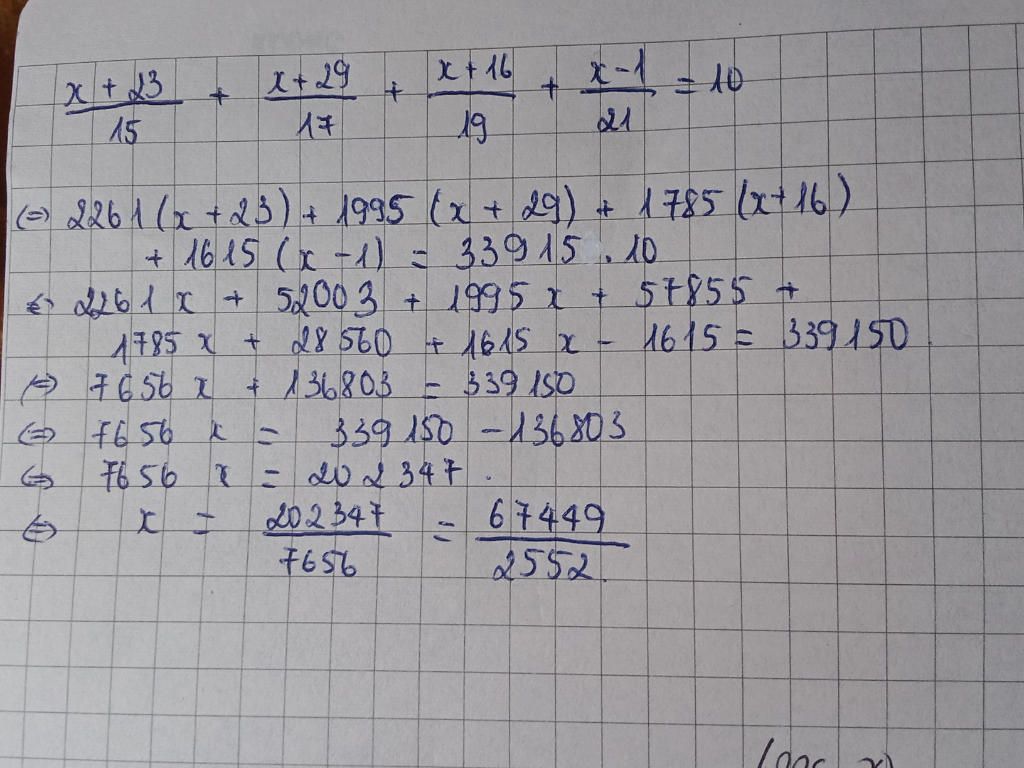 x + 23 / 15 + x + 29 / 17 + x + 16 / 19 + x - 1 / 21 = 10
⇔ 2261 (x + 23) + 1995 (x + 29) + 1785 (x + 16)
+ 1615 (x - 1) = 33915 . 10
⇔ 2261 x + 52003 + 1995 x + 57855 +
1785 x + 28560 + 1615 x - 1615 = 339150
⇔ 7656 x + 136803 = 339150
⇔ 7656 x = 339150 - 136803
⇔ 7656 x = 202347 .
⇔ x = 202347 / 7656 = 67449 / 2552 .